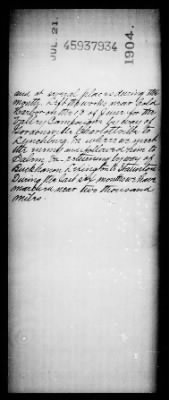 JUL 21.
45937934
1904.
and at several places during the
month. Left the works near Cold
Harbor on the 13 of June for the
Valley Campaign by way of
Gordonsville Charlottesville to
Lynchburg, Va where we met
the enemy and followed him to
Salem, Va. returning by way of
Buchanan, Lexington & Staunton
During the last six months we have
marched near two thousand
miles.